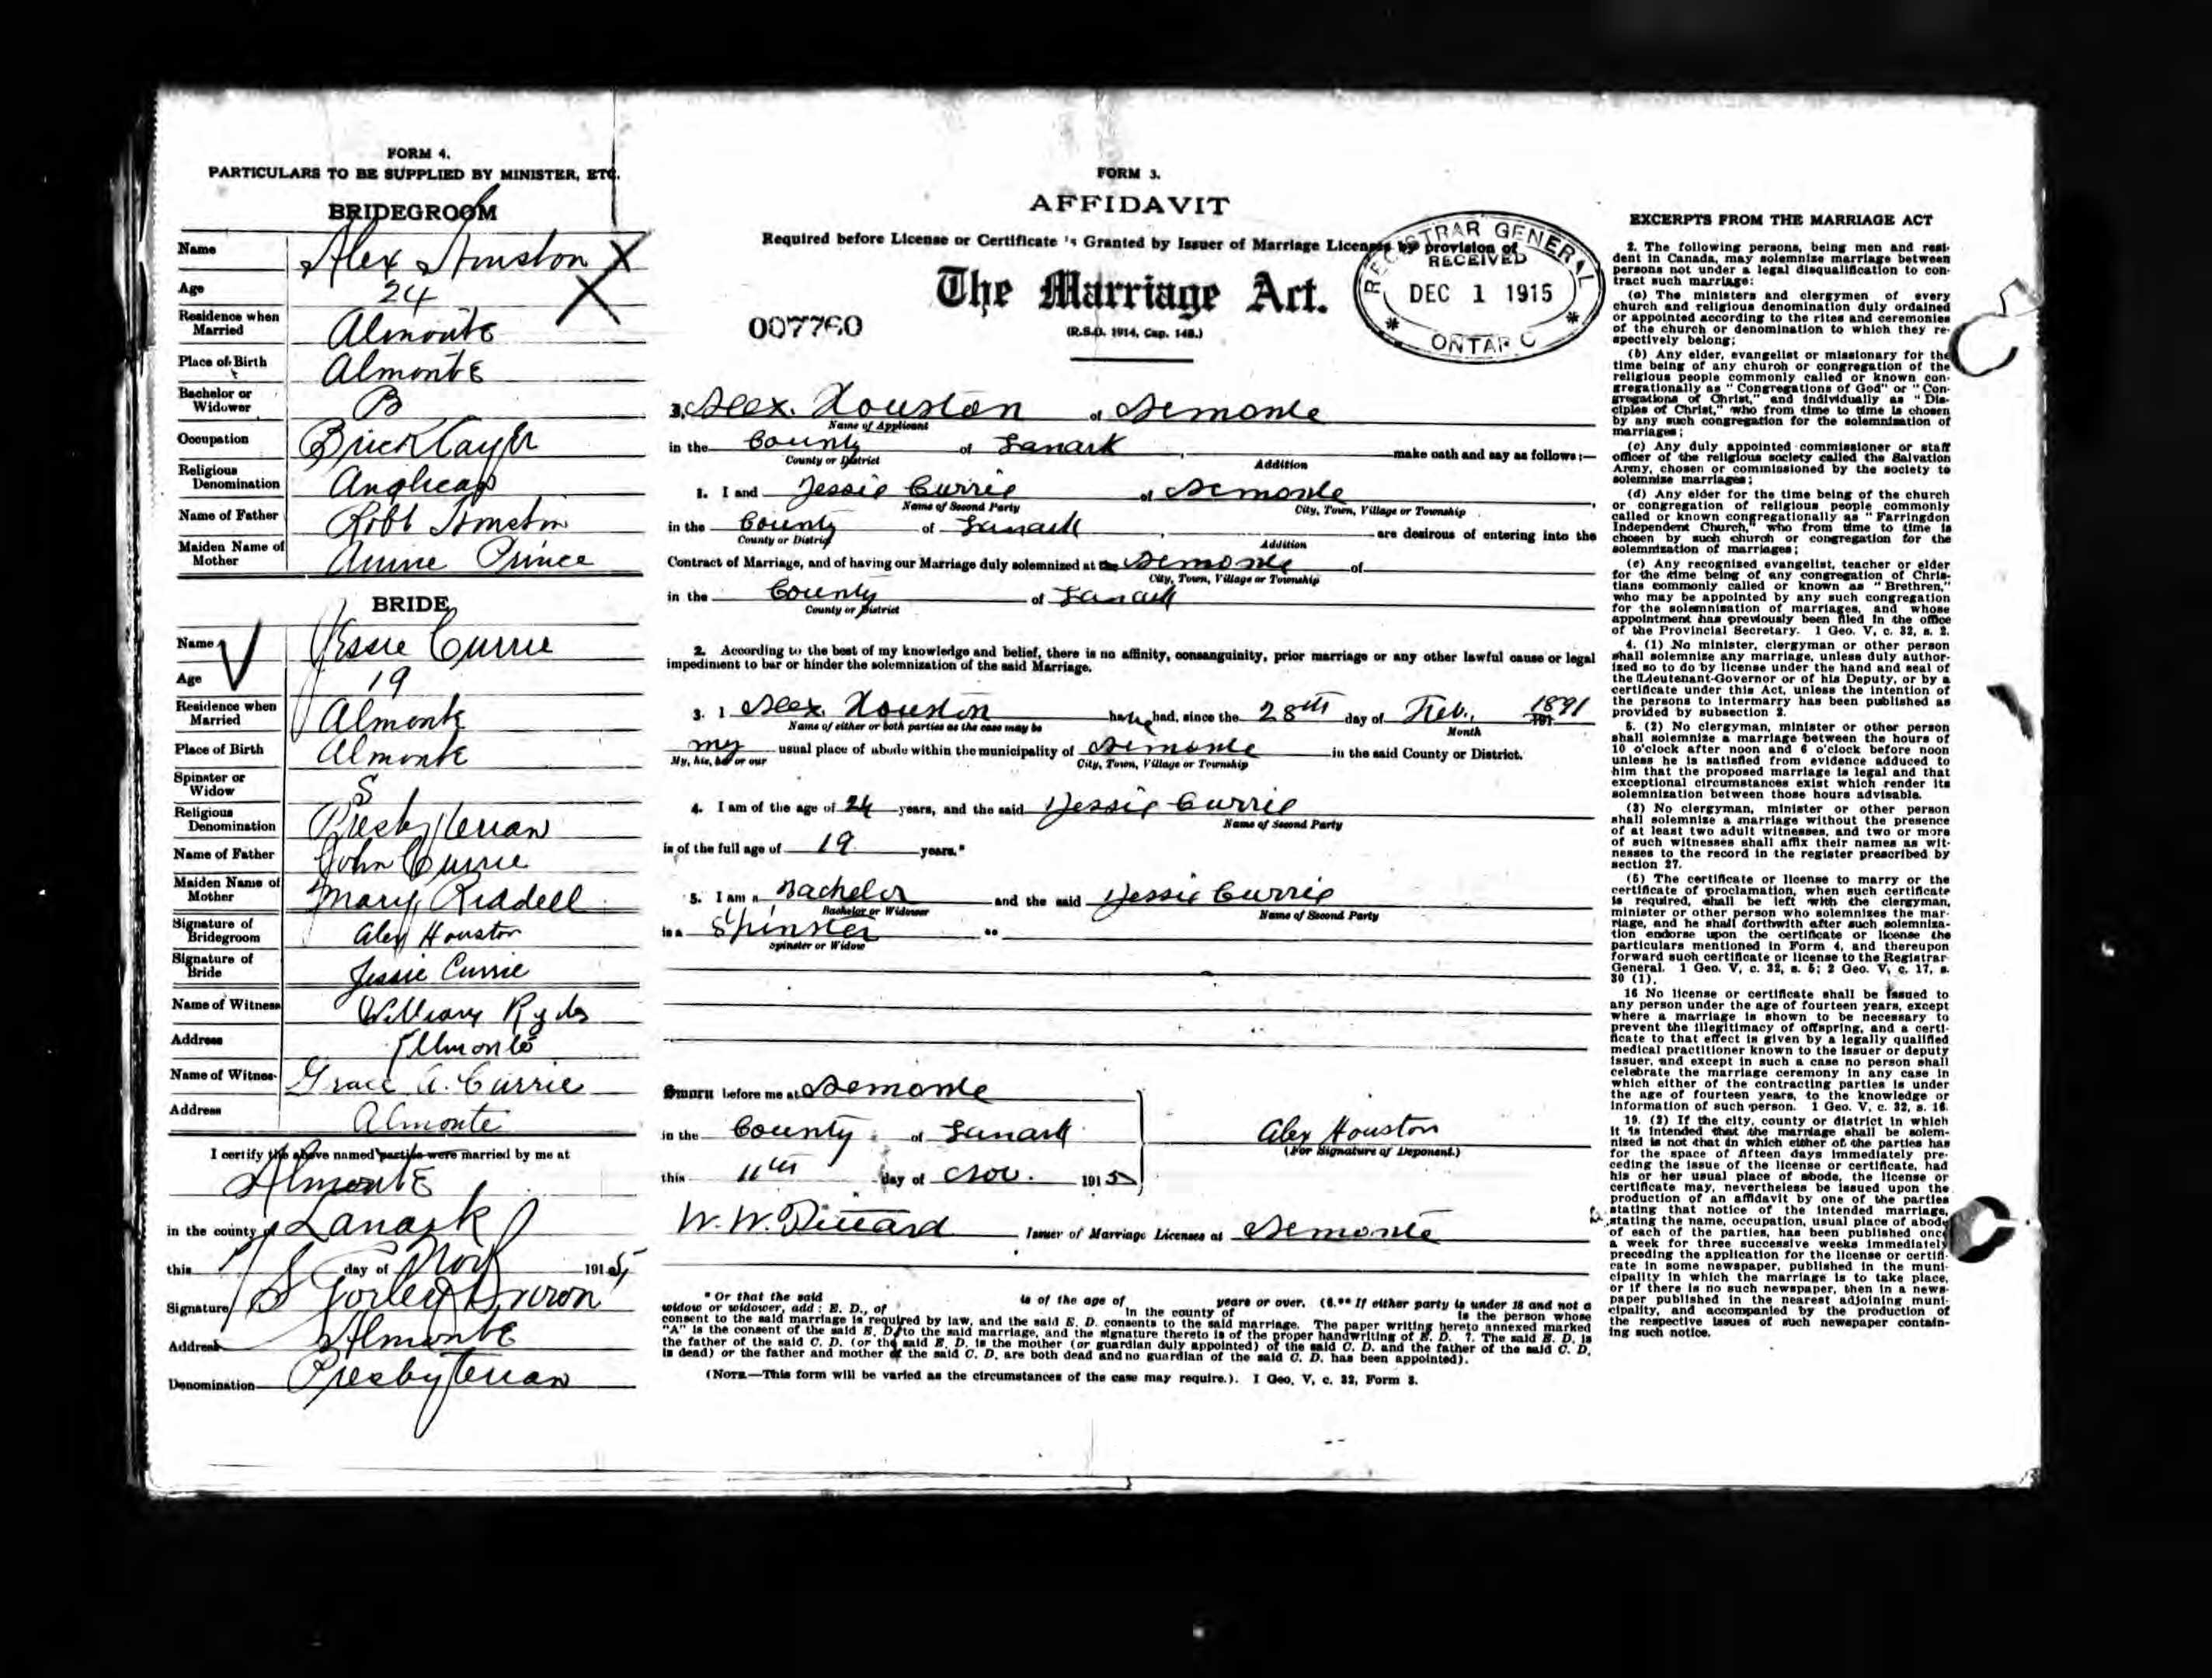 FORM 4.
PARTICULARS TO BE SUPPLIED BY MINISTER, ETC.
BRIDEGROOM
Name Alex Houston X
Age 24 X
Residence when Married Almonte
Place of Birth Almonte
Bachelor or Widower B
Occupation Bricklayer
Religious Denomination Anglican
Name of Father Robt Houston
Maiden Name of Mother Annie Prince
BRIDE
Name Jessie Currie
Age 19
Residence when Married Almonte
Place of Birth Almonte
Spinster or Widow S
Religious Denomination Presbyterian
Name of Father John Currie
Maiden Name of Mother Mary Riddell
Signature of Bridegroom Alex Houston
Signature of Bride Jessie Currie
Name of Witness William
Address Almonte
Name of Witness Grace A. Currie
Address Almonte
I certify the above named parties were married by me at
Almonte
in the county of Lanark
this day of Nov 1915
Signature
Address Almonte
Denomination Presbyterian
FORM 3.
AFFIDAVIT
Required before License or Certificate is Granted by Issuer of Marriage Licenses by provision of
The Marriage Act.
(R.S.O. 1914, Cap. 148.)
007760
REGISTRAR GENERAL
RECEIVED
DEC 1 1915
* ONTARIO *
Alex. Houston of Almonte
Name of Applicant
in the County of Lanark, make oath and say as follows:—
County or District Addition
1. I and Jessie Currie of Almonte,
Name of Second Party City, Town, Village or Township
in the County of Lanark, are desirous of entering into the
County or District Addition
Contract of Marriage, and of having our Marriage duly solemnized at the Almonte of
City, Town, Village or Township
in the County of Lanark
County or District
2. According to the best of my knowledge and belief, there is no affinity, consanguinity, prior marriage or any other lawful cause or legal
impediment to bar or hinder the solemnization of the said Marriage.
3. I Alex. Houston have had, since the 28th day of Feb., 1891
Name of either or both parties as the case may be Month
my usual place of abode within the municipality of Almonte in the said County or District.
My, his, her or our City, Town, Village or Township
4. I am of the age of 24 years, and the said Jessie Currie
Name of Second Party
is of the full age of 19 years.*
5. I am a Bachelor and the said Jessie Currie
Bachelor or Widower Name of Second Party
is a Spinster **
Spinster or Widow
Sworn before me at Almonte
in the County of Lanark
this 11th day of Nov. 1915
Alex Houston
(For Signature of Deponent.)
W. W. Issuer of Marriage Licenses at Almonte
* Or that the said is of the age of years or over. (6.** If either party is under 18 and not a
widow or widower, add: E. D., of in the county of is the person whose
consent to the said marriage is required by law, and the said E. D. consents to the said marriage. The paper writing hereto annexed marked
"A" is the consent of the said E. D. to the said marriage, and the signature thereto is of the proper handwriting of E. D. 7. The said E. D. is
the father of the said C. D. (or the said E. D. is the mother (or guardian duly appointed) of the said C. D. and the father of the said C. D.
is dead) or the father and mother of the said C. D. are both dead and no guardian of the said C. D. has been appointed).
(NOTE—This form will be varied as the circumstances of the case may require.). 1 Geo. V, c. 32, Form 3.
EXCERPTS FROM THE MARRIAGE ACT
2. The following persons, being men and resi-
dent in Canada, may solemnize marriage between
persons not under a legal disqualification to con-
tract such marriage:
(a) The ministers and clergymen of every
church and religious denomination duly ordained
or appointed according to the rites and ceremonies
of the church or denomination to which they re-
spectively belong;
(b) Any elder, evangelist or missionary for the
time being of any church or congregation of the
religious people commonly called or known con-
gregationally as "Congregations of God" or "Con-
gregations of Christ," and individually as "Dis-
ciples of Christ," who from time to time is chosen
by any such congregation for the solemnization of
marriages;
(c) Any duly appointed commissioner or staff
officer of the religious society called the Salvation
Army, chosen or commissioned by the society to
solemnize marriages;
(d) Any elder for the time being of the church
or congregation of religious people commonly
called or known congregationally as "Farringdon
Independent Church," who from time to time is
chosen by such church or congregation for the
solemnization of marriages;
(e) Any recognized evangelist, teacher or elder
for the time being of any congregation of Chris-
tians commonly called or known as "Brethren,"
who may be appointed by any such congregation
for the solemnization of marriages, and whose
appointment has previously been filed in the office
of the Provincial Secretary. 1 Geo. V, c. 32, s. 2.
4. (1) No minister, clergyman or other person
shall solemnize any marriage, unless duly author-
ized so to do by license under the hand and seal of
the Lieutenant-Governor or of his Deputy, or by a
certificate under this Act, unless the intention of
the persons to intermarry has been published as
provided by subsection 2.
5. (2) No clergyman, minister or other person
shall solemnize a marriage between the hours of
10 o'clock after noon and 6 o'clock before noon
unless he is satisfied from evidence adduced to
him that the proposed marriage is legal and that
exceptional circumstances exist which render its
solemnization between those hours advisable.
(3) No clergyman, minister or other person
shall solemnize a marriage without the presence
of at least two adult witnesses, and two or more
of such witnesses shall affix their names as wit-
nesses to the record in the register prescribed by
section 27.
(5) The certificate or license to marry or the
certificate of proclamation, when such certificate
is required, shall be left with the clergyman,
minister or other person who solemnizes the mar-
riage, and he shall forthwith after such solemniza-
tion endorse upon the certificate or license the
particulars mentioned in Form 4, and thereupon
forward such certificate or license to the Registrar
General. 1 Geo. V, c. 32, s. 5; 2 Geo. V, c. 17, s.
30 (1).
16 No license or certificate shall be issued to
any person under the age of fourteen years, except
where a marriage is shown to be necessary to
prevent the illegitimacy of offspring, and a certi-
ficate to that effect is given by a legally qualified
medical practitioner known to the issuer or deputy
issuer, and except in such a case no person shall
celebrate the marriage ceremony in any case in
which either of the contracting parties is under
the age of fourteen years, to the knowledge or
information of such person. 1 Geo. V, c. 32, s. 16.
19. (2) If the city, county or district in which
it is intended that the marriage shall be solem-
nized is not that in which either of the parties has
for the space of fifteen days immediately pre-
ceding the issue of the license or certificate, had
his or her usual place of abode, the license or
certificate may, nevertheless be issued upon the
production of an affidavit by one of the parties
stating that notice of the intended marriage,
stating the name, occupation, usual place of abode
of each of the parties, has been published once
a week for three successive weeks immediately
preceding the application for the license or certifi-
cate in some newspaper, published in the muni-
cipality in which the marriage is to take place,
or if there is no such newspaper, then in a news-
paper published in the nearest adjoining muni-
cipality, and accompanied by the production of
the respective issues of such newspaper contain-
ing such notice.